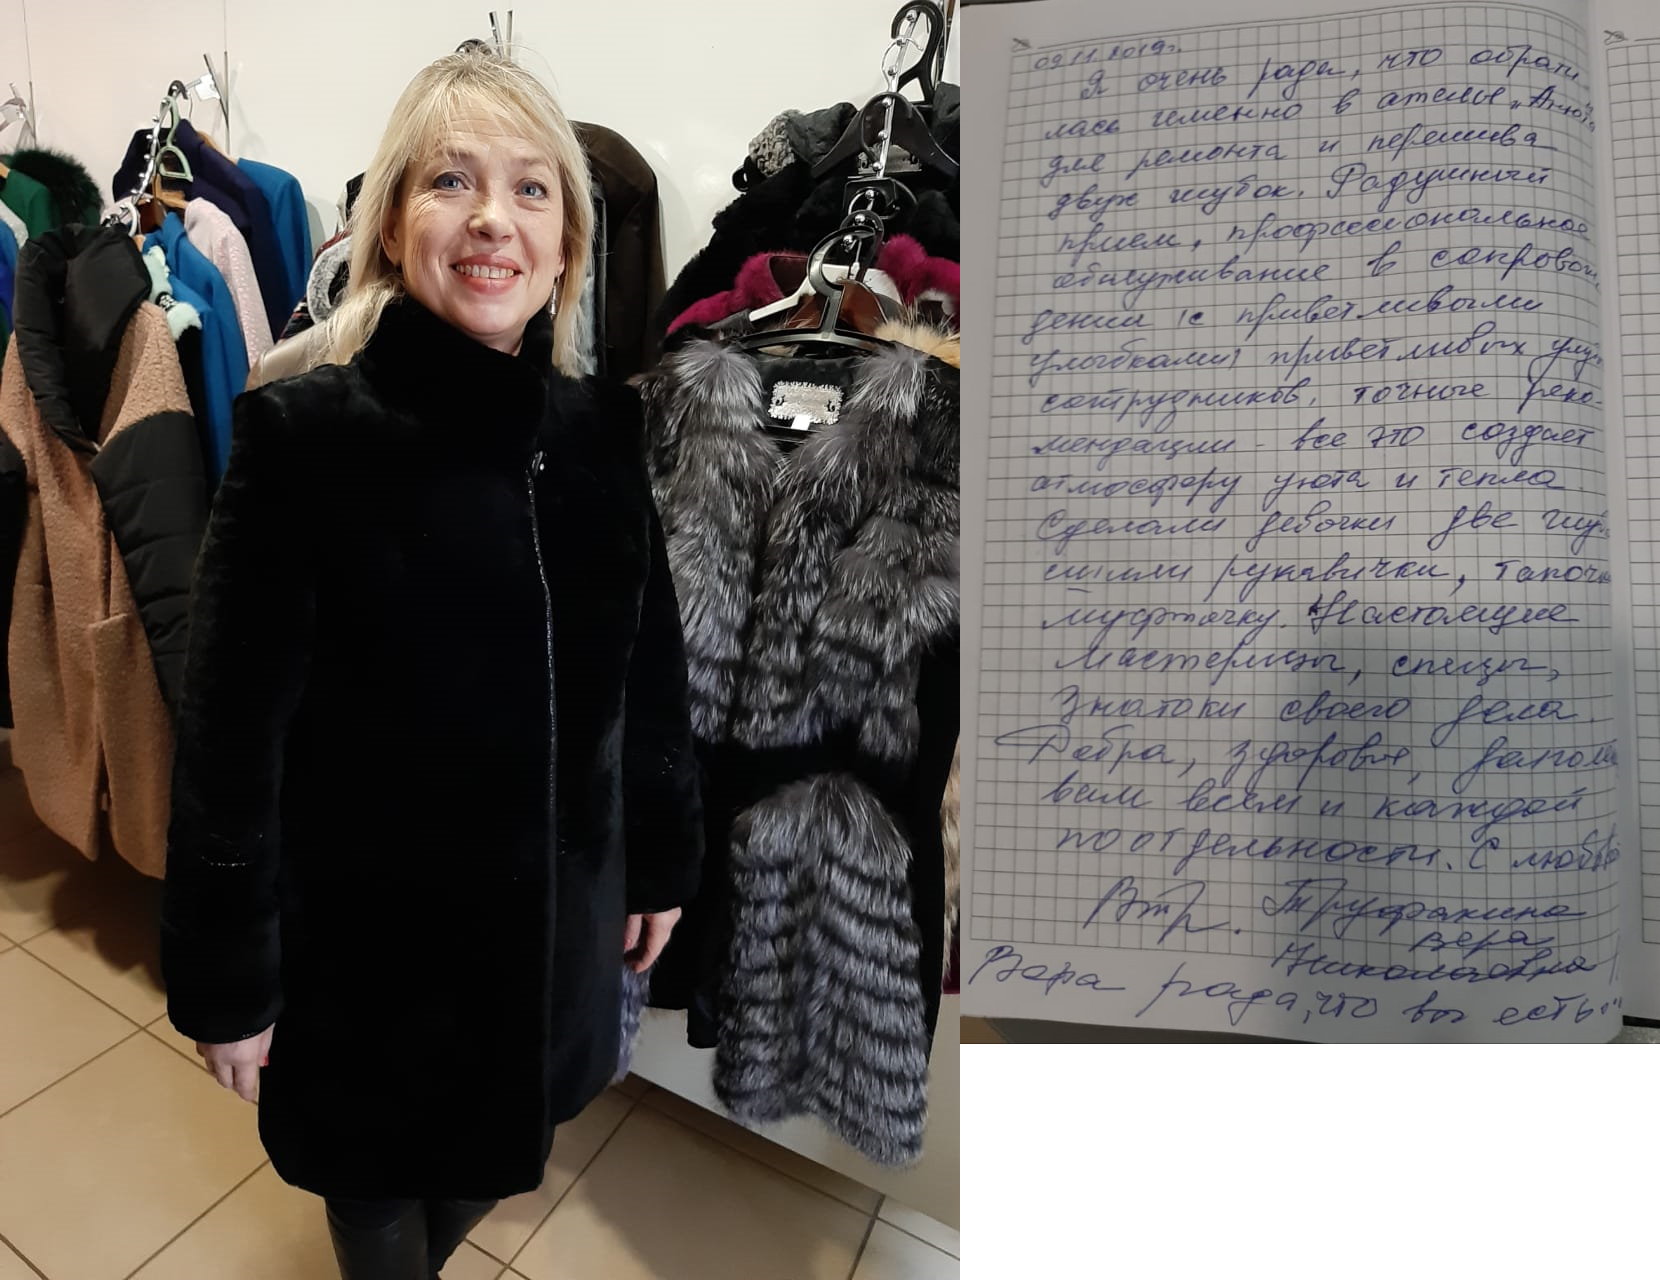 09.11.2019г.
Я очень рада, что обрати
лась именно в ателье "Анюта"
для ремонта и перешива
двух шубок. Радушный
прием, профессиональное
обслуживание в сопровож
дении (с приветливыми
улыбками) приветливых улы
сотрудников, точные реко-
мендации - все это создает
атмосферу уюта и тепла.
Сделали девочки две шу
сшили рукавички, тапочк
муфточку. Настоящие
мастерицы, спецы,
знатоки своего дела.
Добра, здоровья,
вам всем и каждой
по отдельности. С любов
Труфакина
Вера
Николаевна
Вера рада, что вы есть!